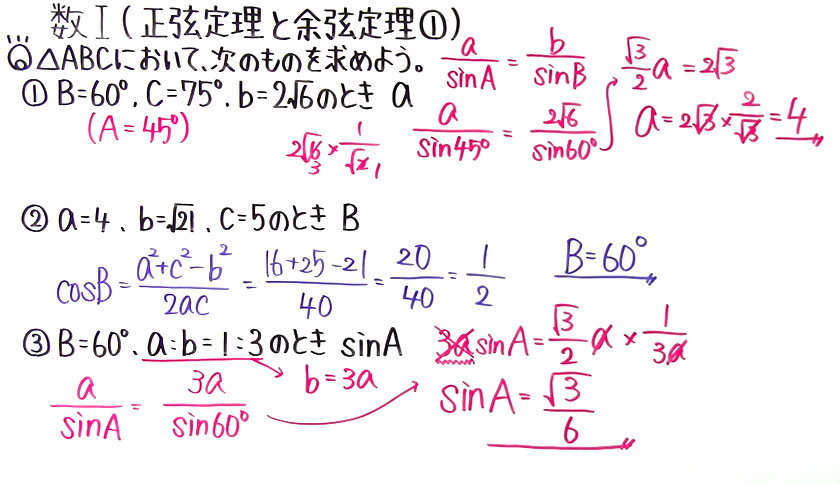 数Ⅰ(正弦定理と余弦定理①)
◎△ABCにおいて、次のものを求めよう。
① B=60°, C=75°, b=2√6のとき a
(A=45°)
2√6 × 1/√2
3 1
a/sinA = b/sinB
a/sin45° = 2√6/sin60°
√3/2 a = 2√3
a=2√3 × 2/√3 = 4
② a=4、b=√21、C=5のとき B
cosB = a²+c²-b²/2ac = 16+25-21/40 = 20/40 = 1/2
B=60°
③ B=60°、a:b=1:3のとき sinA
b=3a
a/sinA = 3a/sin60°
3a sinA = √3/2 a × 1/3a
sinA = √3/6